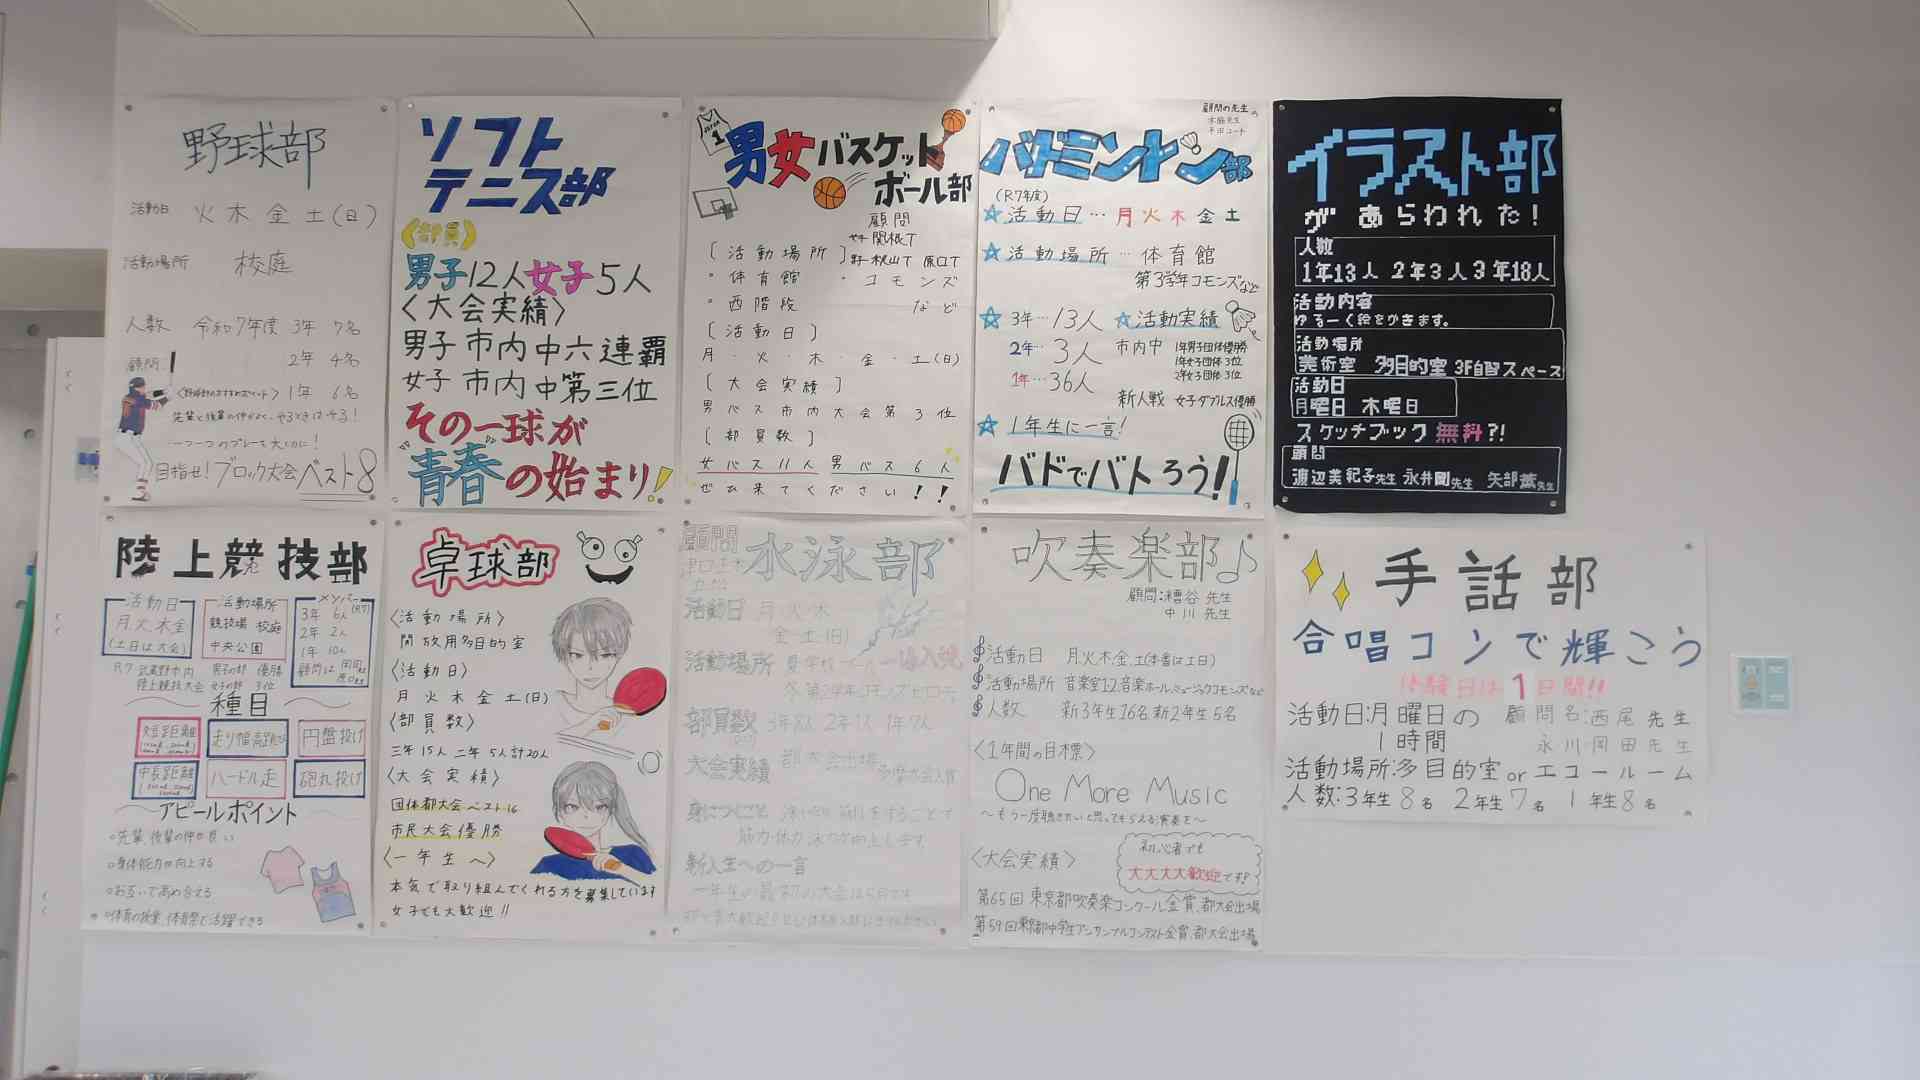 野球部
活動日 火 木 金 土(日)
活動場所 校庭
人数 令和7年度 3年 7名
2年 4名
顧問:
1年 6名
目指せ!ブロック大会ベスト8
ソフト
テニス部
〈部員〉
男子12人女子5人
〈大会実績〉
男子 市内中六連覇
女子 市内中第三位
その一球が
"青春"の始まり!
男女バスケット
ボール部
顧問
関根T
[活動場所]
・体育館 ・コモンズ
・西階段 など
[活動日]
月・火・木・金・土(日)
[大会実績]
男バス市内大会第3位
[部員数]
女バス11人 男バス6人
ぜひ来てください!!
顧問の先生
バドミントン部
(R7年度)
☆活動日…月火木金土
☆活動場所…体育館
第3学年コモンズなど
☆3年…13人 ☆活動実績
2年…3人 市内中 1年男子団体優勝
1年女子団体3位
2年女子団体3位
1年…36人
新人戦 女子ダブルス優勝
☆1年生に一言!
バドでバトろう!
イラスト部
があらわれた!
人数
1年13人 2年3人 3年18人
活動内容
ゆるーく絵をかきます。
活動場所
美術室 多目的室 3F自習スペース
活動日
月曜日 木曜日
スケッチブック無料?!
顧問
渡辺美紀子先生 永井剛先生 矢部薫先生
陸上競技部
活動日
月火木金
(土日は大会)
活動場所
競技場 校庭
中央公園
メンバー
(R7)
3年 6人
2年 2人
1年 10人
R7 武蔵野市内 男子の部 優勝
陸上競技大会 女子の部 3位
種目
短距離
走り幅高跳び
円盤投げ
中長距離
ハードル走
砲丸投げ
アピールポイント
○先輩、後輩の仲が良い
○身体能力が向上する
○お互いで高め合える
○体育の授業、体育祭で活躍できる
卓球部
〈活動場所〉
開放用多目的室
〈活動日〉
月火木金土(日)
〈部員数〉
三年15人 二年5人計20人
〈大会実績〉
団体都大会ベスト16
市民大会優勝
〈一年生へ〉
本気で取り組んでくれる方を募集しています
女子でも大歓迎!!
顧問
水泳部
活動日 月・火・木
金 土(日)
活動場所
部員数 3年8人 2年1人 1年7人
大会実績 都大会出場
身につくこと
筋力・体力・泳力が向上します
新入生への一言
吹奏楽部♪
顧問:糟谷先生
中川先生
活動日 月火木金、土(本番は土日)
活動場所 音楽室1.2、音楽ホール、ミュージックコモンズなど
人数 新3年生16名新2年生5名
〈1年間の目標〉
One More Music
〜もう一度聴きたいと思ってもらえる演奏を〜
〈大会実績〉
初心者でも
大大大大歓迎です!
第65回 東京都吹奏楽コンクール金賞、都大会出場
第59回東京都中学生アンサンブルコンテスト金賞、都大会出場
手話部
合唱コンで輝こう
体験日は1日間!!
活動日:月曜日の
1時間
顧問名:西尾先生
永川・岡田先生
活動場所:多目的室orエコールーム
人数:3年生8名 2年生7名 1年生8名